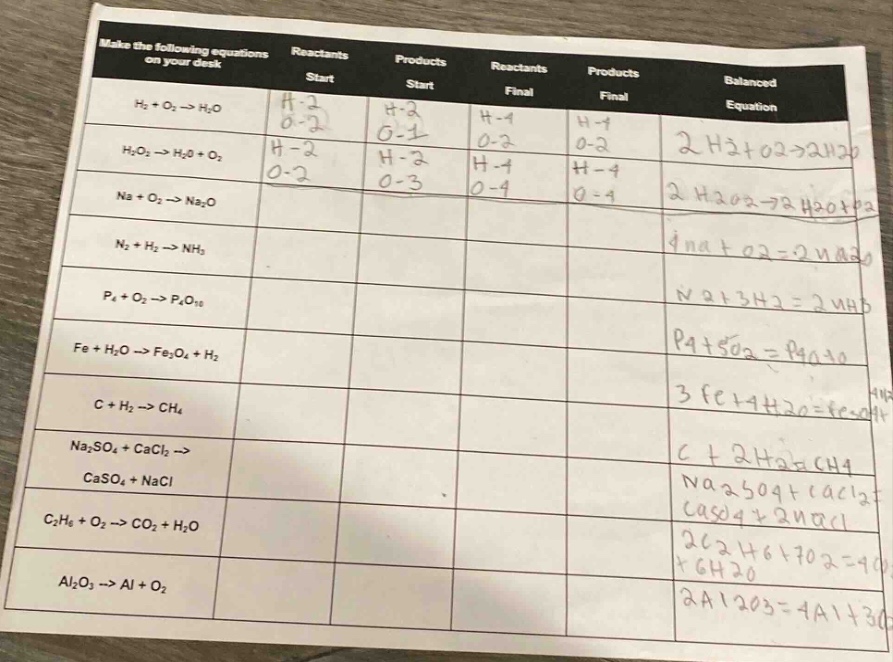 Make the following equations on your desk
Reactants Start
Products Start
Reactants Final
Products Final
Balanced Equation
H₂ + O₂ --> H₂O
H-2
O-2
H-2
O-1
H-4
O-2
H-4
O-2
2 H2 + O2→2H2O
H₂O₂ --> H₂0 + O₂
H-2
O-2
H-2
O-3
H-4
O-4
H-4
O-4
2 H2O2→2 H2O+O2
Na + O₂ --> Na₂O
4na + O2 = 2na2O
N₂ + H₂ --> NH₃
N2+3H2 = 2NH3
P₄ + O₂ --> P₄O₁₀
P4+5O2 = P4O10
Fe + H₂O --> Fe₃O₄ + H₂
3 Fe+4H2O=Fe3O4+
4H2
C + H₂ --> CH₄
C + 2H2=CH4
Na₂SO₄ + CaCl₂ -->
CaSO₄ + NaCl
Na2SO4+CaCl2=
CaSO4+2NaCl
C₂H₆ + O₂ --> CO₂ + H₂O
2C2H6+7O2=4CO
+ 6H2O
Al₂O₃ --> Al + O₂
2Al2O3=4Al+3O